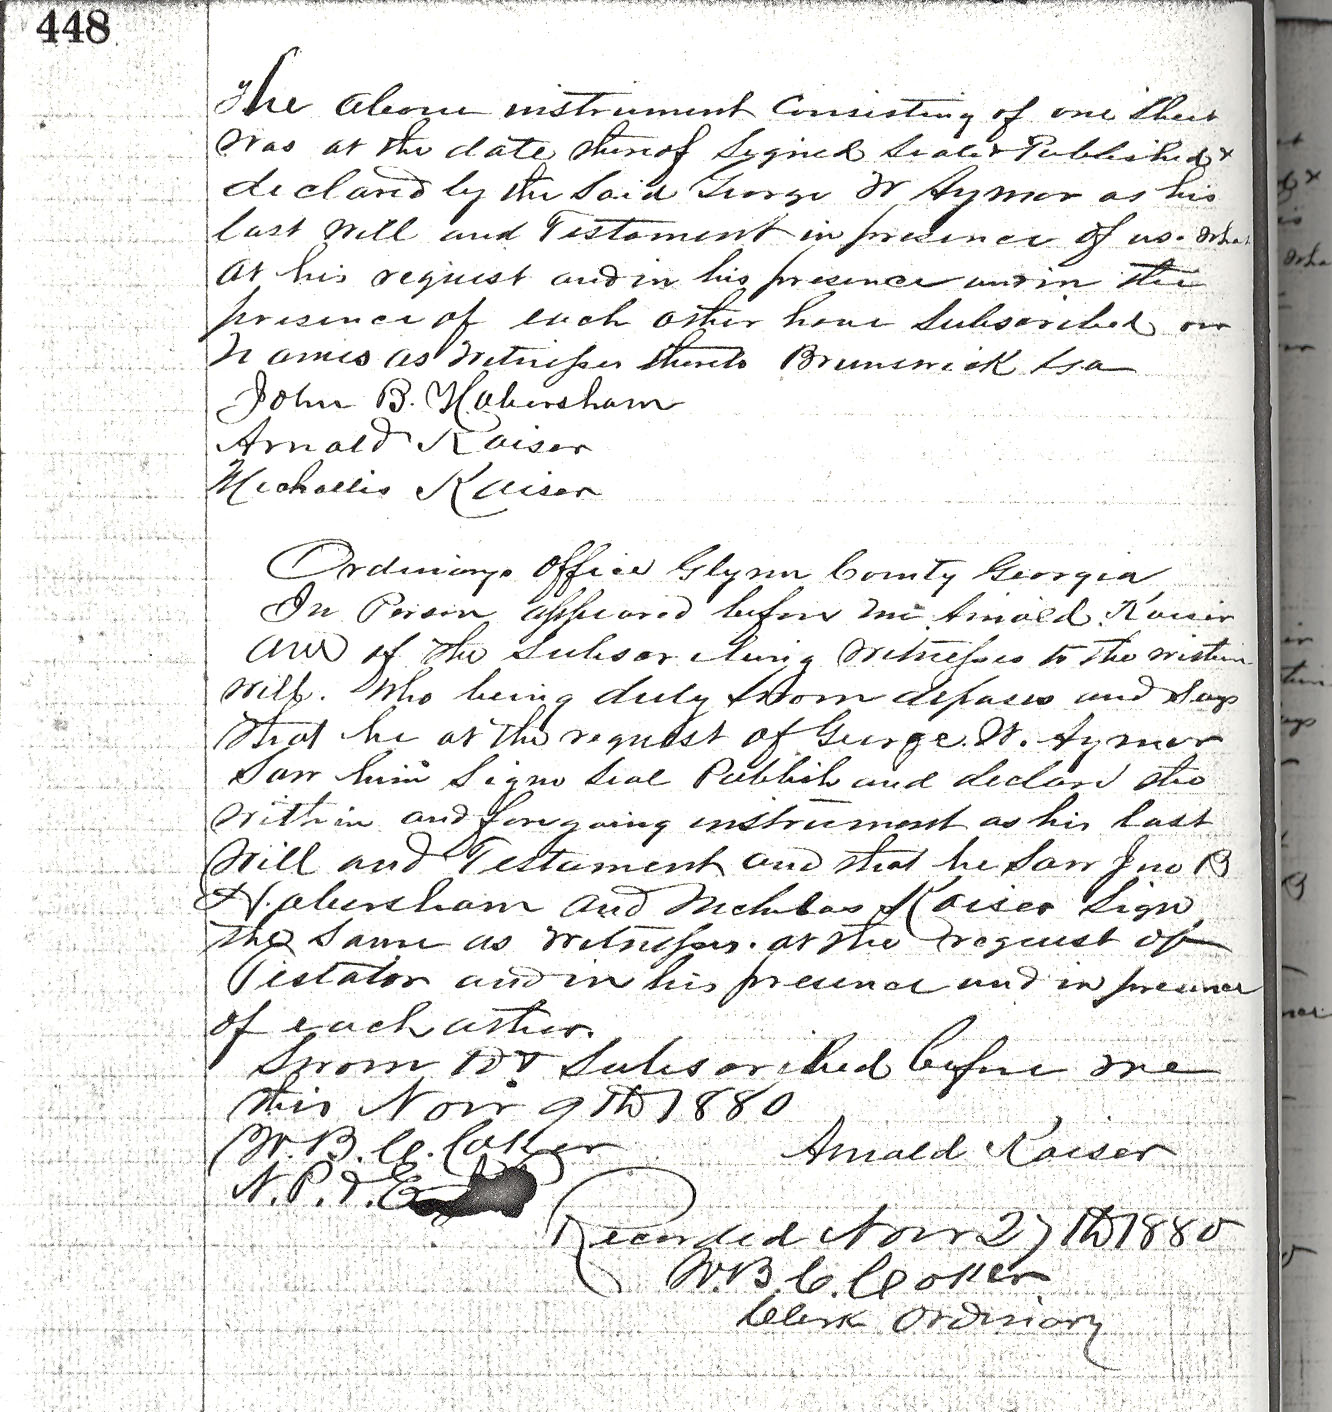 448
The above instrument Consisting of one Sheet
was at the date thereof Signed Sealed Published &
declared by the Said George W Aymar as his
last Will and Testament in presence of us. Who
at his request and in his presence and in the
presence of each other have Subscribed our
names as Witnesses thereto Brunswick Ga
John B. Habersham
Arnold Kaiser
Kaiser
Ordinarys Office Glynn County Georgia
In Person appeared before me Arnold Kaiser
one of the Subscribing Witnesses to the within
will. Who being duly Sworn deposes and Says
that he at the request of George. W. Aymar
Saw him Signe Seal Publish and declare the
within and foregoing instrument as his last
Will and Testament and that he Saw Jno B
Habersham and Kaiser Sign
the Same as Witnesses. at the request of
Testator and in his presence and in presence
of each other.
Sworn to & Subscribed before me
this Novr 9th 1880
W. B. C. Coker Arnold Kaiser
N. P. & E
Recorded Novr 27th 1880
W. B. C. Coker
Clerk Ordinary